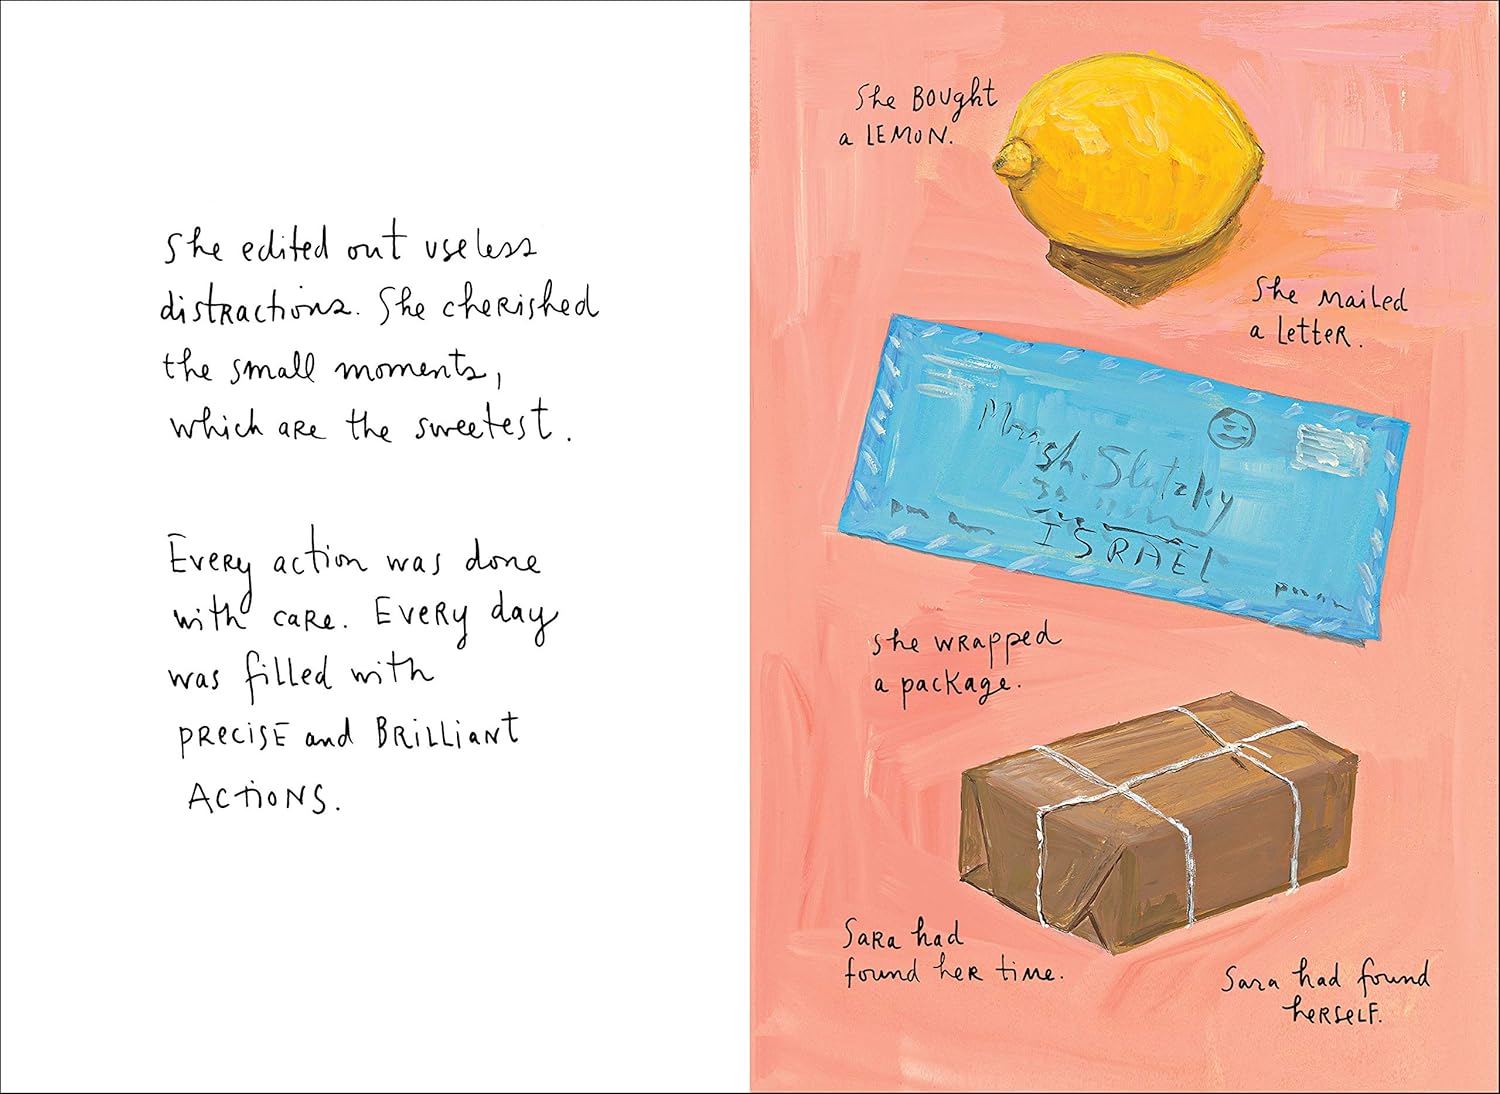 She edited out useless
distractions. She cherished
the small moments,
which are the sweetest.
Every action was done
with care. Every day
was filled with
PRECISE and BRILLIANT
ACTIONS.
She BOUght
a LEMON.
She mailed
a letter.
Slutzky
ISRAEL
She wrapped
a package.
Sara had
found her time.
Sara had found
herself.